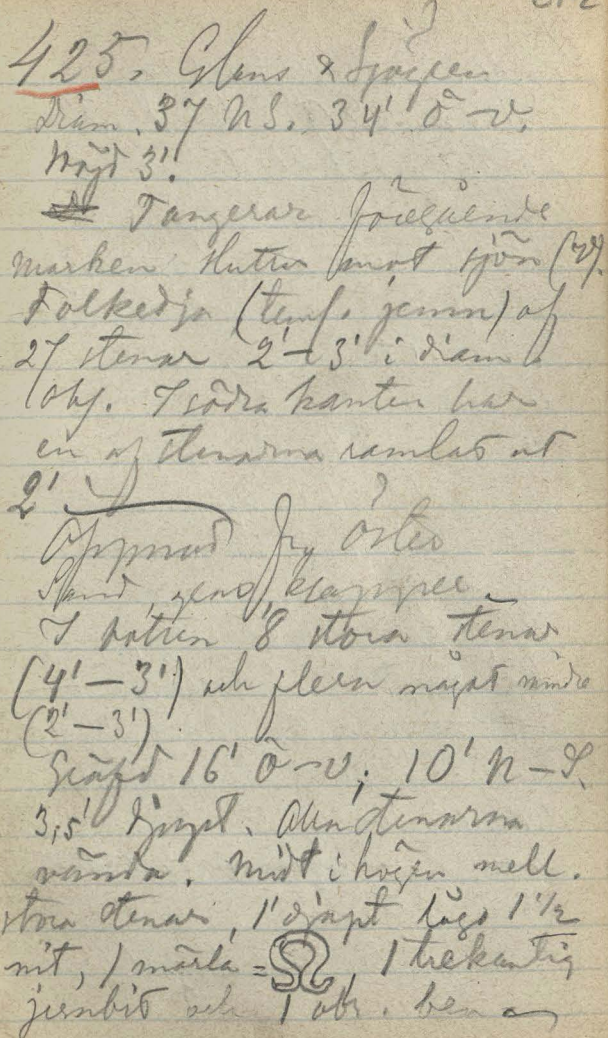 425. Glens & Sjögren
Diam. 37 NS. 34' Ö-V.
Höjd 3'.
Tangerar föregående
marken sluttar mot sjön (V).
Fotkedja (teml. jemn) af
27 stenar 2'-3' i diam
obs. I södra kanten har
en af stenarna ramlat ut
2'
Öppnad fr. öster
Sand, grus, klapper.
I botten 8 stora stenar
(4'-3') och flera något mindre
(2'-3')
Gräfd 16' Ö-V; 10' N-S.
3,5' djupt. Alla stenarna
vända. Midt i högen mell.
stora stenar, 1' djupt lågo 1 1/2
nit, 1 märla = , 1 trekantig
jernbit och 1 obr. ben